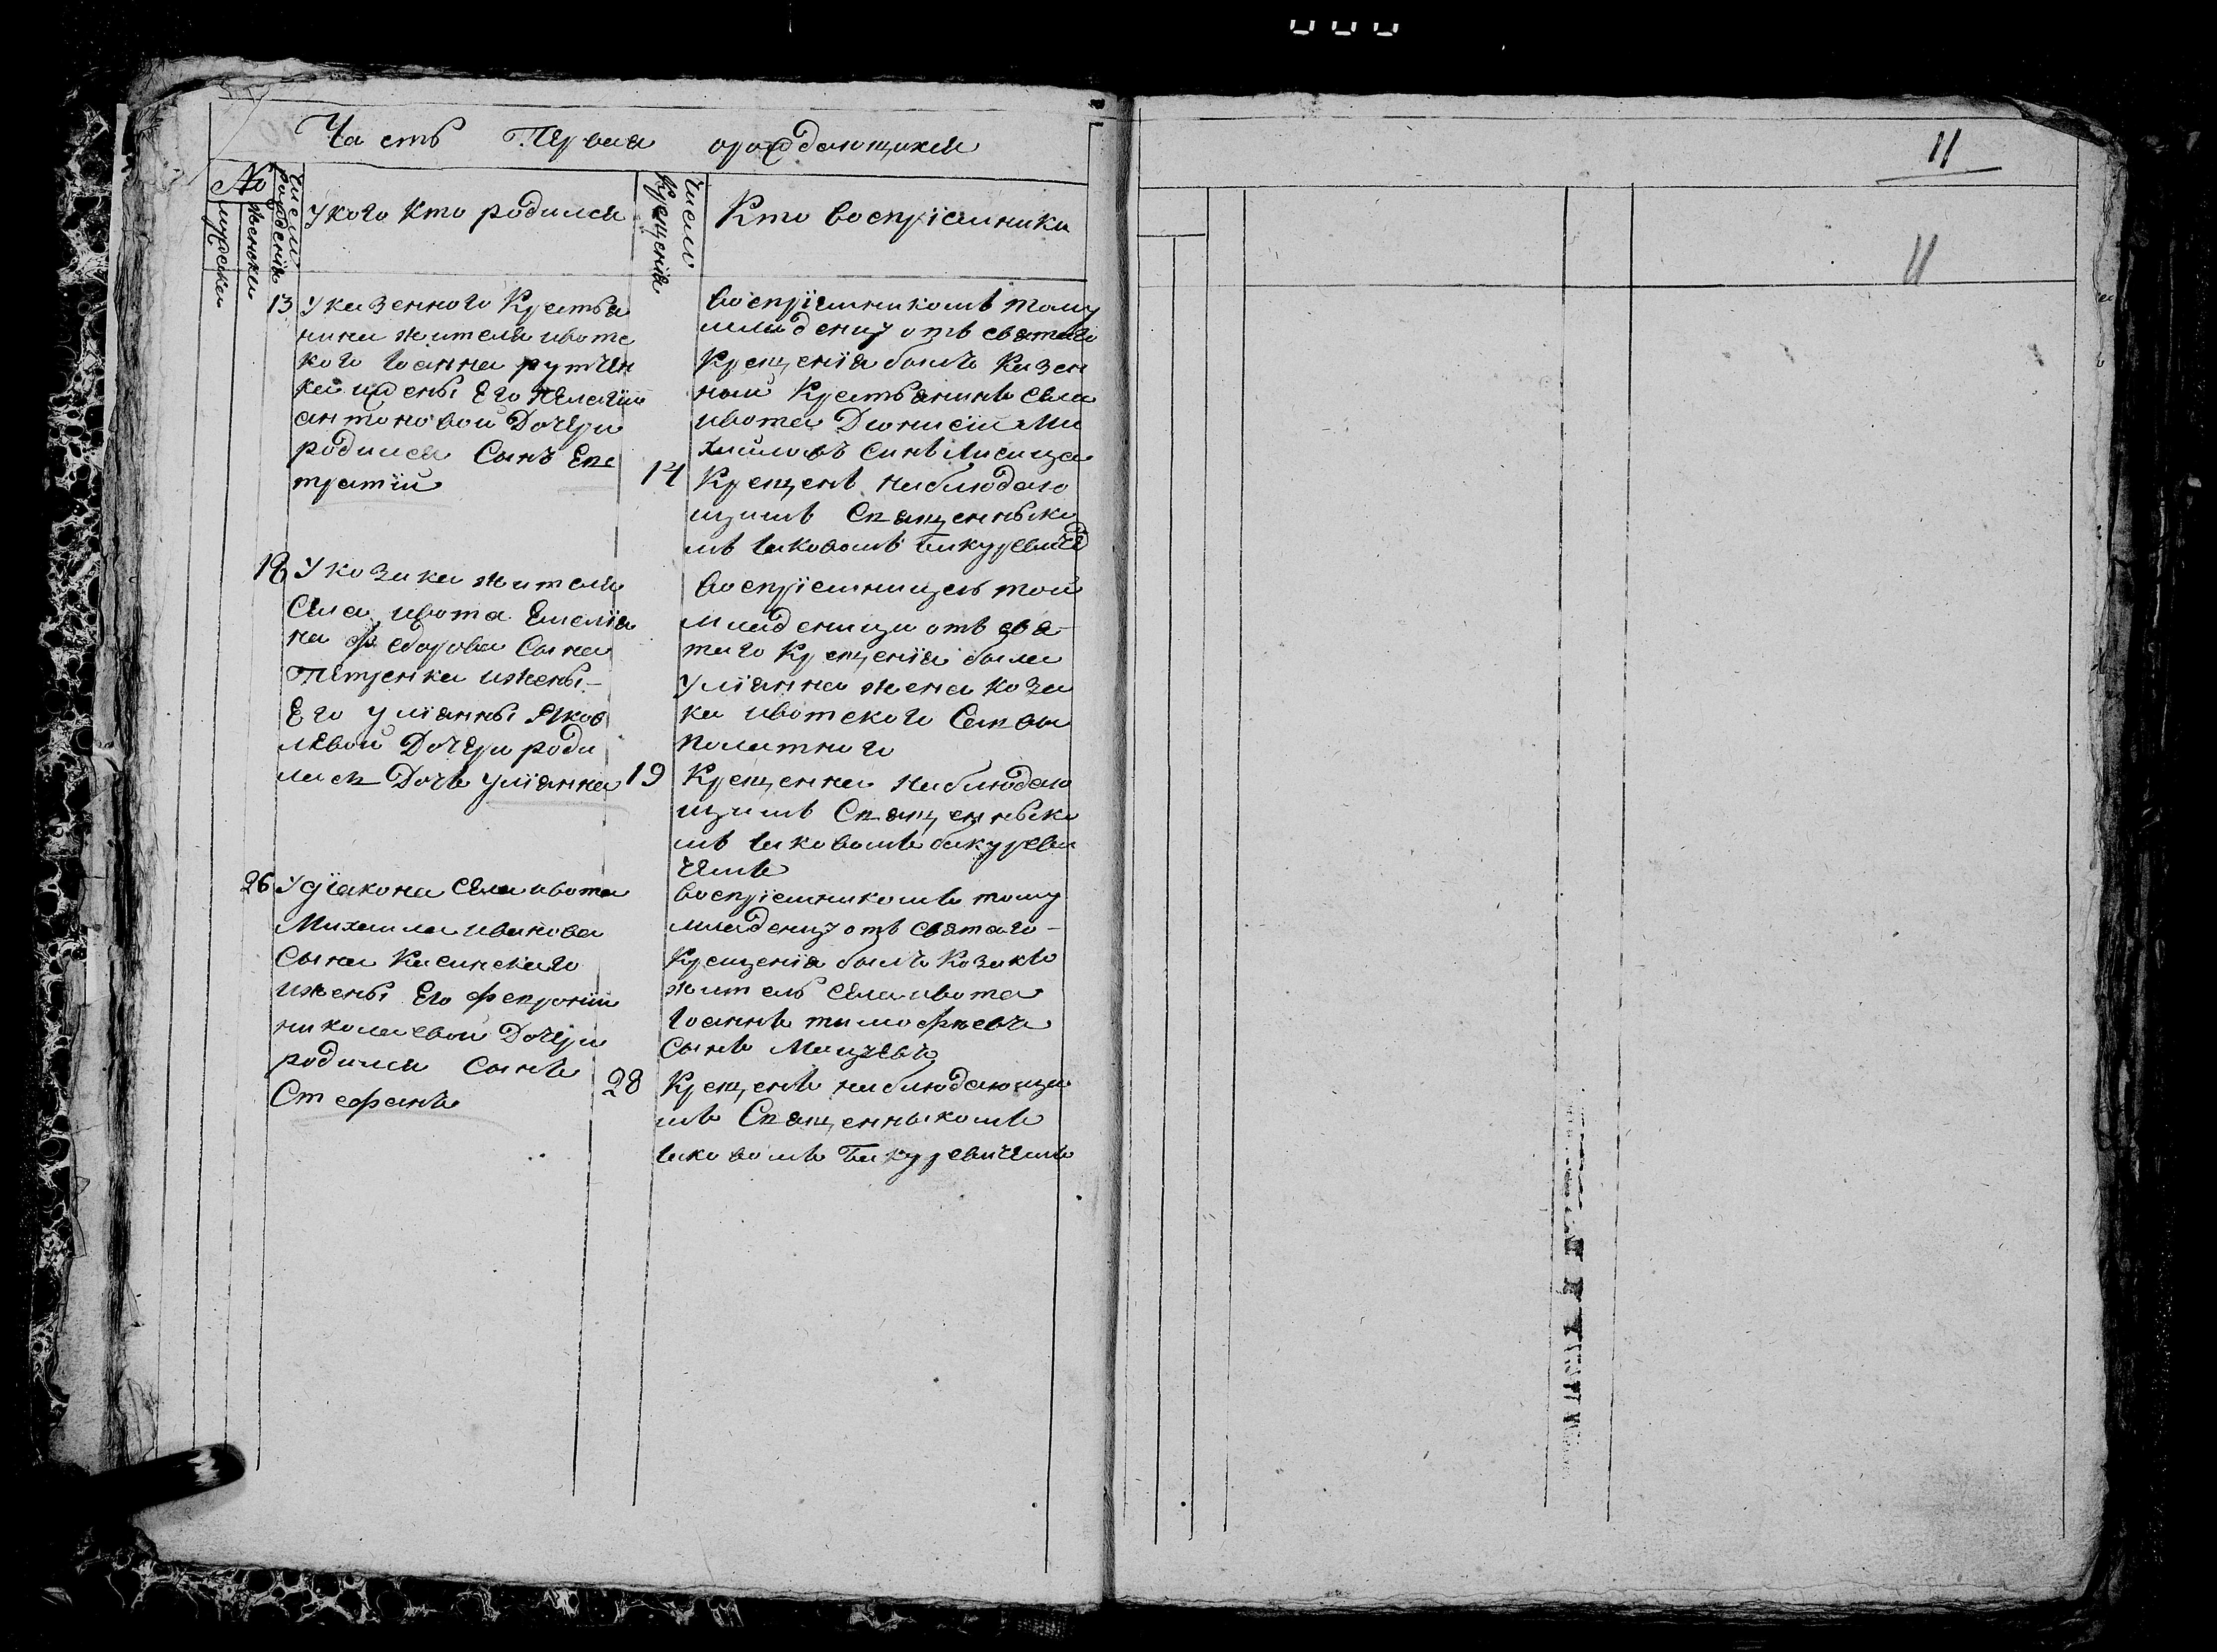 Часть Первая ораждающихся
11
№
мужеска
женска
Число рождения
У кого кто родился
Число Крещения
Кто воспріемники
11
13
У казенного Крестья
нина жителя ивотс
кого Іоанна рутчен
ка ижены Его Пелагіи
антоновой Дочери
родился Сынъ Евс
тратий
воспріемникомъ тому
младенцу отъ святаго
Крещенія былъ Казен
ный Крестьянинъ села
ивота Дионисій Ми
хайловъ Синъ Лисица
14
Крещенъ наблюдаю
щимъ Священныко
мъ Іаковомъ
18
У козака жителя
Села ивота Емеліа
на федорова Сына
Петренка ижены
Его уліанны Яков
левой Дочери роди
лась Дочь уліанна
воспріемницею той
младеницы отъ свя-
таго Крещенія была
уліанна жена коза
ка ивотского Саввы
Полатного
19
Крещенна наблюдаю
щимъ Священныко
мъ Іаковомъ бакуреви
чемъ
26
У діакона Села ивота
Михаила иванова
Сына Касинскаго
ижены Его февроніи
николаевой Дочери
родился Сынъ
Стефанъ
воспріемникомъ тому
младенцу отъ святаго-
Крещенія былъ Козакъ
житель Села ивота
Іоаннъ тимофѣевъ
Сынъ
28
Крещенъ наблюдающи
мъ Священныкомъ
Іаковомъ Бакуревичемъ